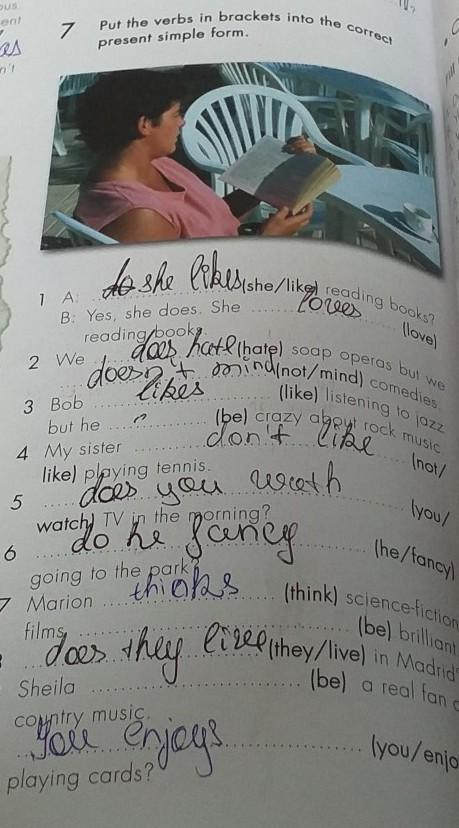 ent
n't
7 Put the verbs in brackets into the correct
present simple form.
1 A: do she likes (she/like) reading books?
B: Yes, she does. She loves (love)
reading books.
2 We does hate (hate) soap operas but we
doesn't mind (not/mind) comedies
3 Bob likes (like) listening to jazz
but he ? (be) crazy about rock music
4 My sister don't like (not/
like) playing tennis.
5 does you wath (you/
watch) TV in the morning?
6 do he fancy (he/fancy)
going to the park?
7 Marion thinks (think) science-fiction
films (be) brilliant
does they live (they/live) in Madrid
Sheila (be) a real fan
country music.
you enjoys (you/enjo
playing cards?